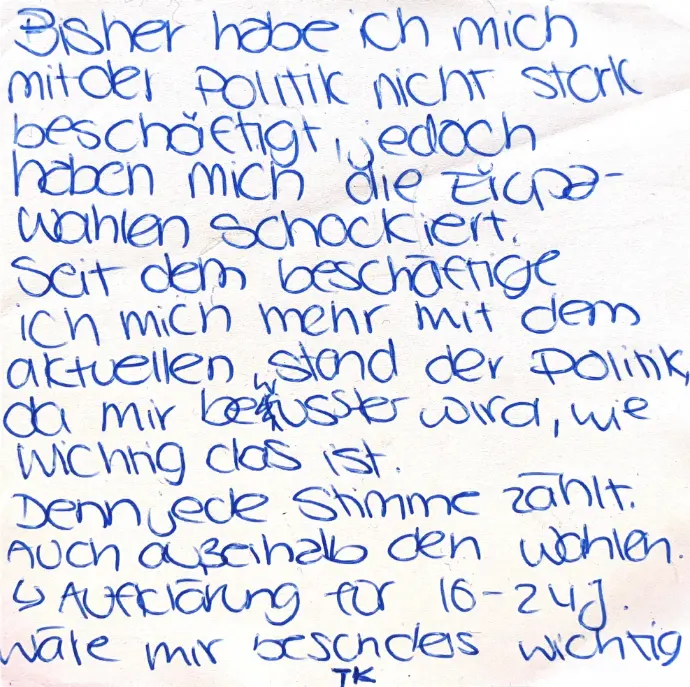 Bisher habe ich mich
mit der Politik nicht stark
beschäftigt, jedoch
haben mich die Eropa-
wahlen schockiert.
Seit dem beschäftige
ich mich mehr mit dem
aktuellen stand der Politik,
da mir bewusster wird, wie
wichtig das ist.
Denn jede Stimme zählt.
Auch außerhalb den wahlen.
↳ Aufklärung für 16-24J.
wäre mir besonders wichtig
TK